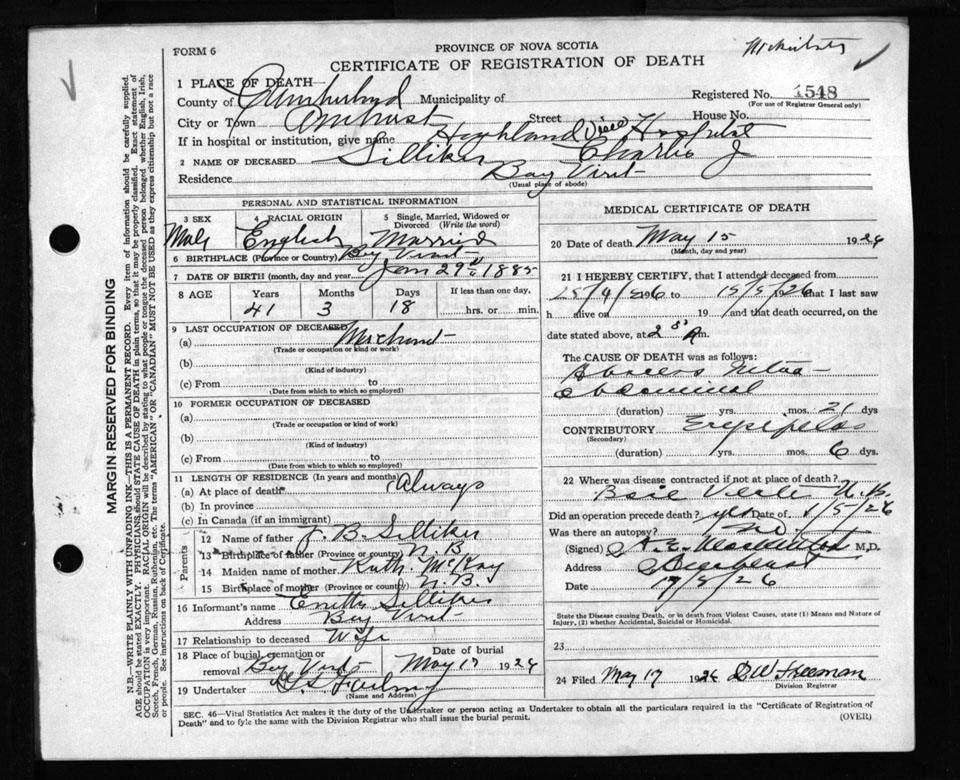 FORM 6
PROVINCE OF NOVA SCOTIA
CERTIFICATE OF REGISTRATION OF DEATH
1 PLACE OF DEATH—
County of Cumberland Municipality of
Registered No. 1548
(For use of Registrar General only)
City or Town Amherst Street House No.
If in hospital or institution, give name Highland View Hospital
2 NAME OF DECEASED Silliker Charlie J
Residence Bay Virt
(Usual place of abode)
PERSONAL AND STATISTICAL INFORMATION
3 SEX
Male
4 RACIAL ORIGIN
English
5 Single, Married, Widowed or Divorced (Write the word)
Married
6 BIRTHPLACE (Province or Country) Bay Virt
7 DATE OF BIRTH (month, day and year) Jan 29th 1885
8 AGE
Years Months Days If less than one day,
41 3 18 hrs. or min.
9 LAST OCCUPATION OF DECEASED
(a) Merchant
(Trade or occupation or kind or work)
(b)
(Kind of industry)
(c) From to
(Date from which to which so employed)
10 FORMER OCCUPATION OF DECEASED
(a)
(Trade or occupation or kind of work)
(b)
(Kind of industry)
(c) From to
(Date from which to which so employed)
11 LENGTH OF RESIDENCE (In years and months)
(a) At place of death Always
(b) In province
(c) In Canada (if an immigrant)
Parents
12 Name of father J. B. Silliker
13 Birthplace of father (Province or country) N. B
14 Maiden name of mother Ruth McKay
15 Birthplace of mother (Province or country) N. B.
16 Informant's name Silliker
Address Bay Virt
17 Relationship to deceased Wife
18 Place of burial, cremation or removal Bay Virt
Date of burial
May 17 1926
19 Undertaker
(Name and Address)
MEDICAL CERTIFICATE OF DEATH
20 Date of death May 15 1926
(Month, day and year)
21 I HEREBY CERTIFY, that I attended deceased from
to 15/5/1926 that I last saw
h alive on 19 and that death occurred, on
date stated above, at 2 m.
The CAUSE OF DEATH was as follows:
Abscess Intra-
abdominal
(duration) yrs. mos. 21 dys
CONTRIBUTORY Erysipelas
(Secondary)
(duration) yrs. mos. 6 dys.
22 Where was disease contracted if not at place of death?
Baie Verte N. B.
Did an operation precede death? yes Date of 1/5/26
Was there an autopsy? no.
(Signed) M.D.
Address Amherst
Date 17/5/26
State the Disease causing Death, or in death from Violent Causes, state (1) Means and Nature of Injury, (2) whether Accidental, Suicidal or Homicidal.
23
24 Filed May 17 1926 Freeman
Division Registrar
SEC. 46—Vital Statistics Act makes it the duty of the Undertaker or person acting as Undertaker to obtain all the particulars required in the "Certificate of Registration of Death" and to fyle the same with the Division Registrar who shall issue the burial permit.
(OVER)
MARGIN RESERVED FOR BINDING
N.B.—WRITE PLAINLY WITH UNFADING INK—THIS IS A PERMANENT RECORD. Every item of information should be carefully supplied.
AGE should be stated EXACTLY. PHYSICIANS, should STATE CAUSE OF DEATH in plain terms, so that it may be properly classified. Exact statement of
OCCUPATION is very important. RACIAL ORIGIN will be described by stating to what people or tongue the deceased person belonged whether English, Irish,
Scotch, French, German, Russian, Ruthenian, etc. The terms "AMERICAN" OR "CANADIAN" MUST NOT BE USED as they express citizenship but not a race
or people. See instructions on back of Certificate.